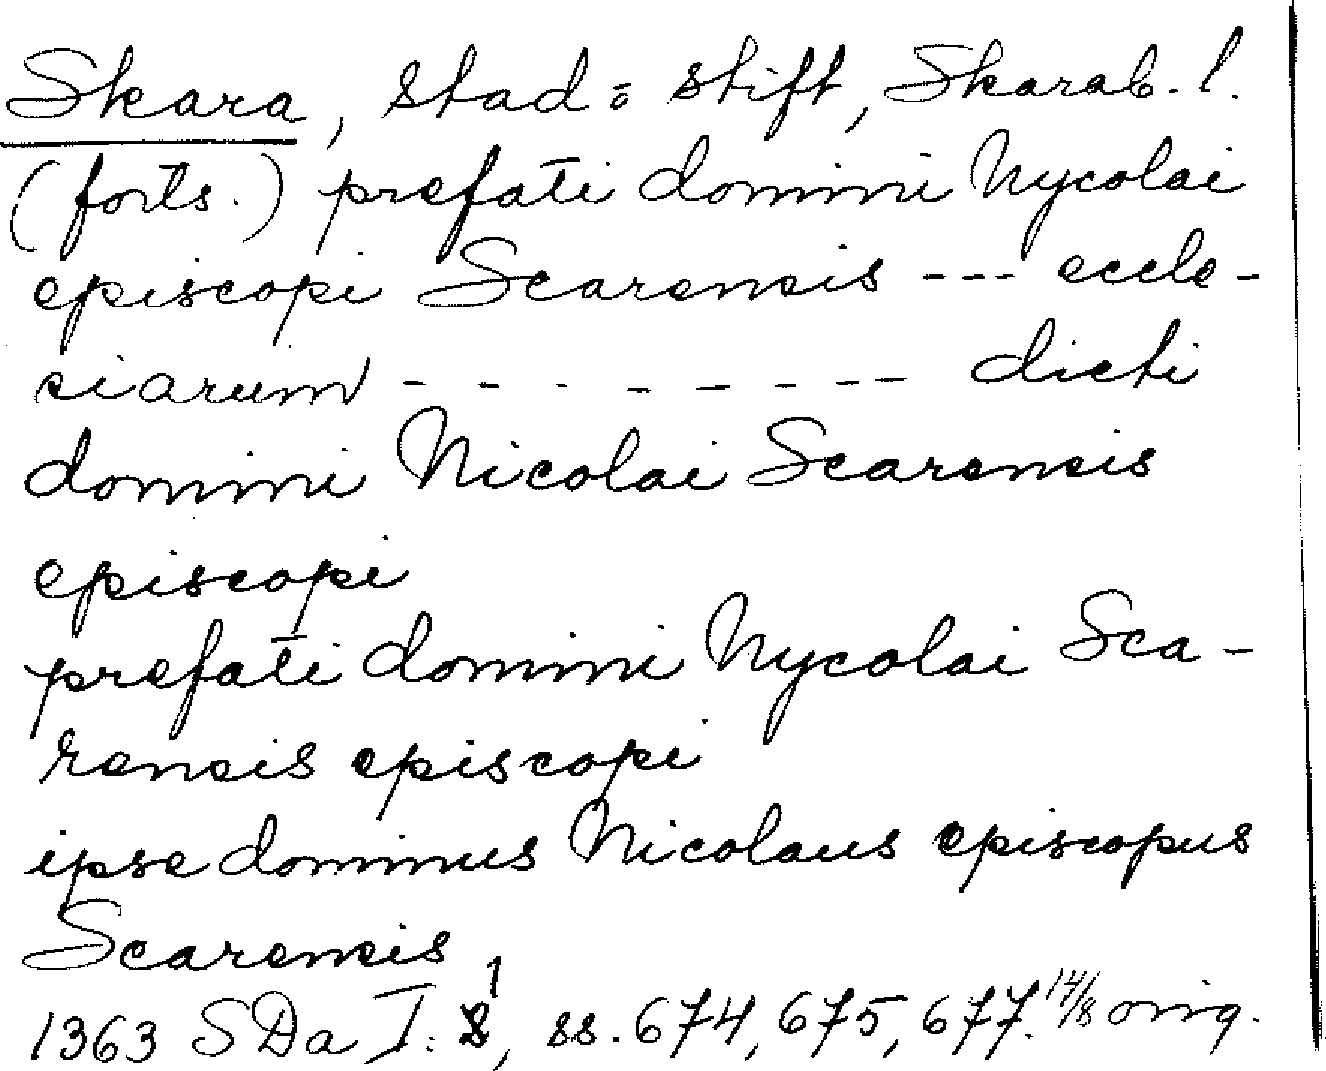 Skara, stad o stift, Skarab. l.
(forts.) prefati domini Nycolai
episcopi Scarensis --- eccle-
siarum - - - - - - - -- dicti
domini Nicolai Scarensis
episcopi
prefati domini Nycolai Sca-
rensis episcopi
ipse dominus Nicolaus episcopus
Scarensis
1363 SDa I: 1, ss. 674, 675, 677. 14/8 orig.